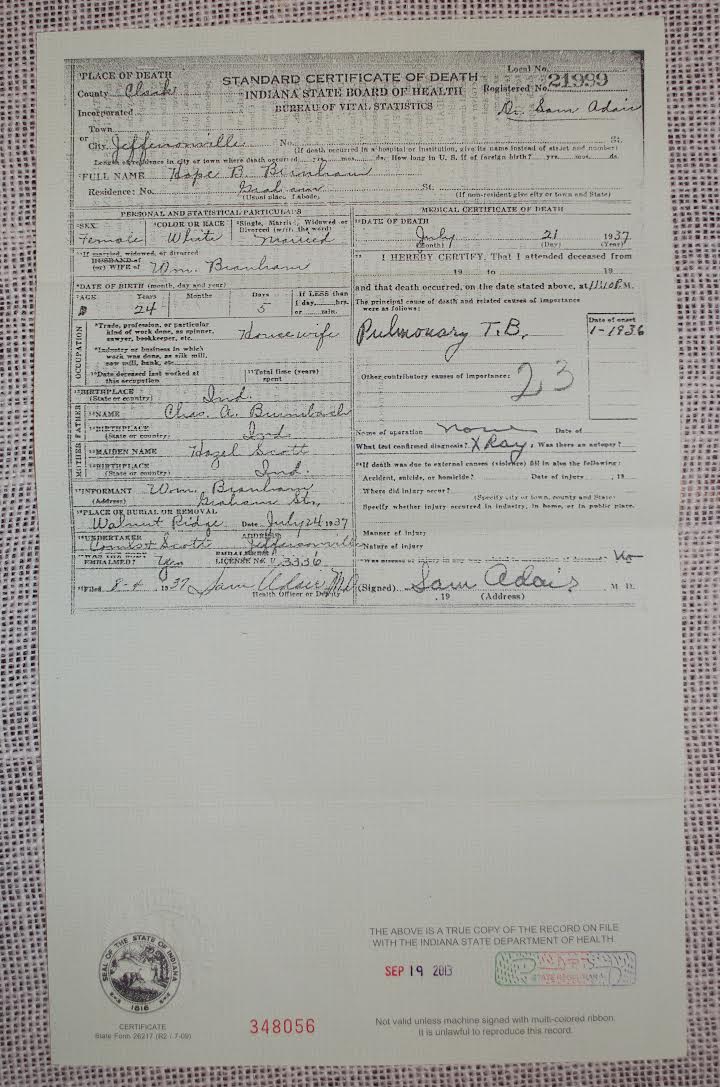 ¹PLACE OF DEATH
County Clark
Incorporated
Town
or
City Jeffersonville No. St.
STANDARD CERTIFICATE OF DEATH
INDIANA STATE BOARD OF HEALTH
BUREAU OF VITAL STATISTICS
Local No.
Registered No. 21999
Dr. Sam Adair
(If death occurred in a hospital or institution, give its name instead of street and number)
Length of residence in city or town where death occurred yrs. mos. ds. How long in U. S. if of foreign birth? yrs. mos. ds.
²FULL NAME Hope B. Branham
Residence: No. Graham St.
(Usual place of abode) (If non-resident give city or town and State)
PERSONAL AND STATISTICAL PARTICULARS
³SEX ⁴COLOR OR RACE ⁵Single, Married, Widowed or Divorced (write the word)
Female White Married
If married, widowed, or divorced
HUSBAND of
(or) WIFE of Wm. Branham
⁶DATE OF BIRTH (month, day and year)
⁷AGE Years Months Days If LESS than
1 day, hrs.
or min.
24 5
OCCUPATION
⁸Trade, profession, or particular
kind of work done, as spinner,
sawyer, bookkeeper, etc. Housewife
⁹Industry or business in which
work was done, as silk mill,
saw mill, bank, etc.
¹⁰Date deceased last worked at
this occupation
¹¹Total time (years)
spent
¹²BIRTHPLACE
(State or country) Ind.
FATHER
¹³NAME Chas. A. Brumbach
¹⁴BIRTHPLACE
(State or country) Ind.
MOTHER
¹⁵MAIDEN NAME Hazel Scott
¹⁶BIRTHPLACE
(State or country) Ind.
¹⁷INFORMANT Wm. Branham
(Address) Graham St.
¹⁸PLACE OF BURIAL OR REMOVAL
Walnut Ridge Date July 24 1937
¹⁹UNDERTAKER ADDRESS
Coombs & Scott Jeffersonville
EMBALMED? Yes LICENSE No. 3336
²⁰Filed 8-4, 1937 Sam Adair MD
Health Officer or Deputy
MEDICAL CERTIFICATE OF DEATH
²¹DATE OF DEATH
July 21 1937
(Month) (Day) (Year)
²² I HEREBY CERTIFY, That I attended deceased from
19 to 19
and that death occurred, on the date stated above, at 11:10 P.M.
The principal cause of death and related causes of importance
were as follows: Date of onset
Pulmonary T.B. 1-1936
Other contributory causes of importance: 23
Name of operation none Date of
What test confirmed diagnosis? X Ray; Was there an autopsy?
²³If death was due to external causes (violence) fill in also the following:
Accident, suicide, or homicide? Date of injury , 19
Where did injury occur?
(Specify city or town, county and State)
Specify whether injury occurred in industry, in home, or in public place.
Manner of injury
Nature of injury
No
(Signed) Sam Adair M. D.
, 19 (Address)
SEAL OF THE STATE OF INDIANA
1816
CERTIFICATE
State Form 26217 (R2 / 7-09)
348056
THE ABOVE IS A TRUE COPY OF THE RECORD ON FILE
WITH THE INDIANA STATE DEPARTMENT OF HEALTH.
SEP 19 2013
Not valid unless machine signed with multi-colored ribbon.
It is unlawful to reproduce this record.